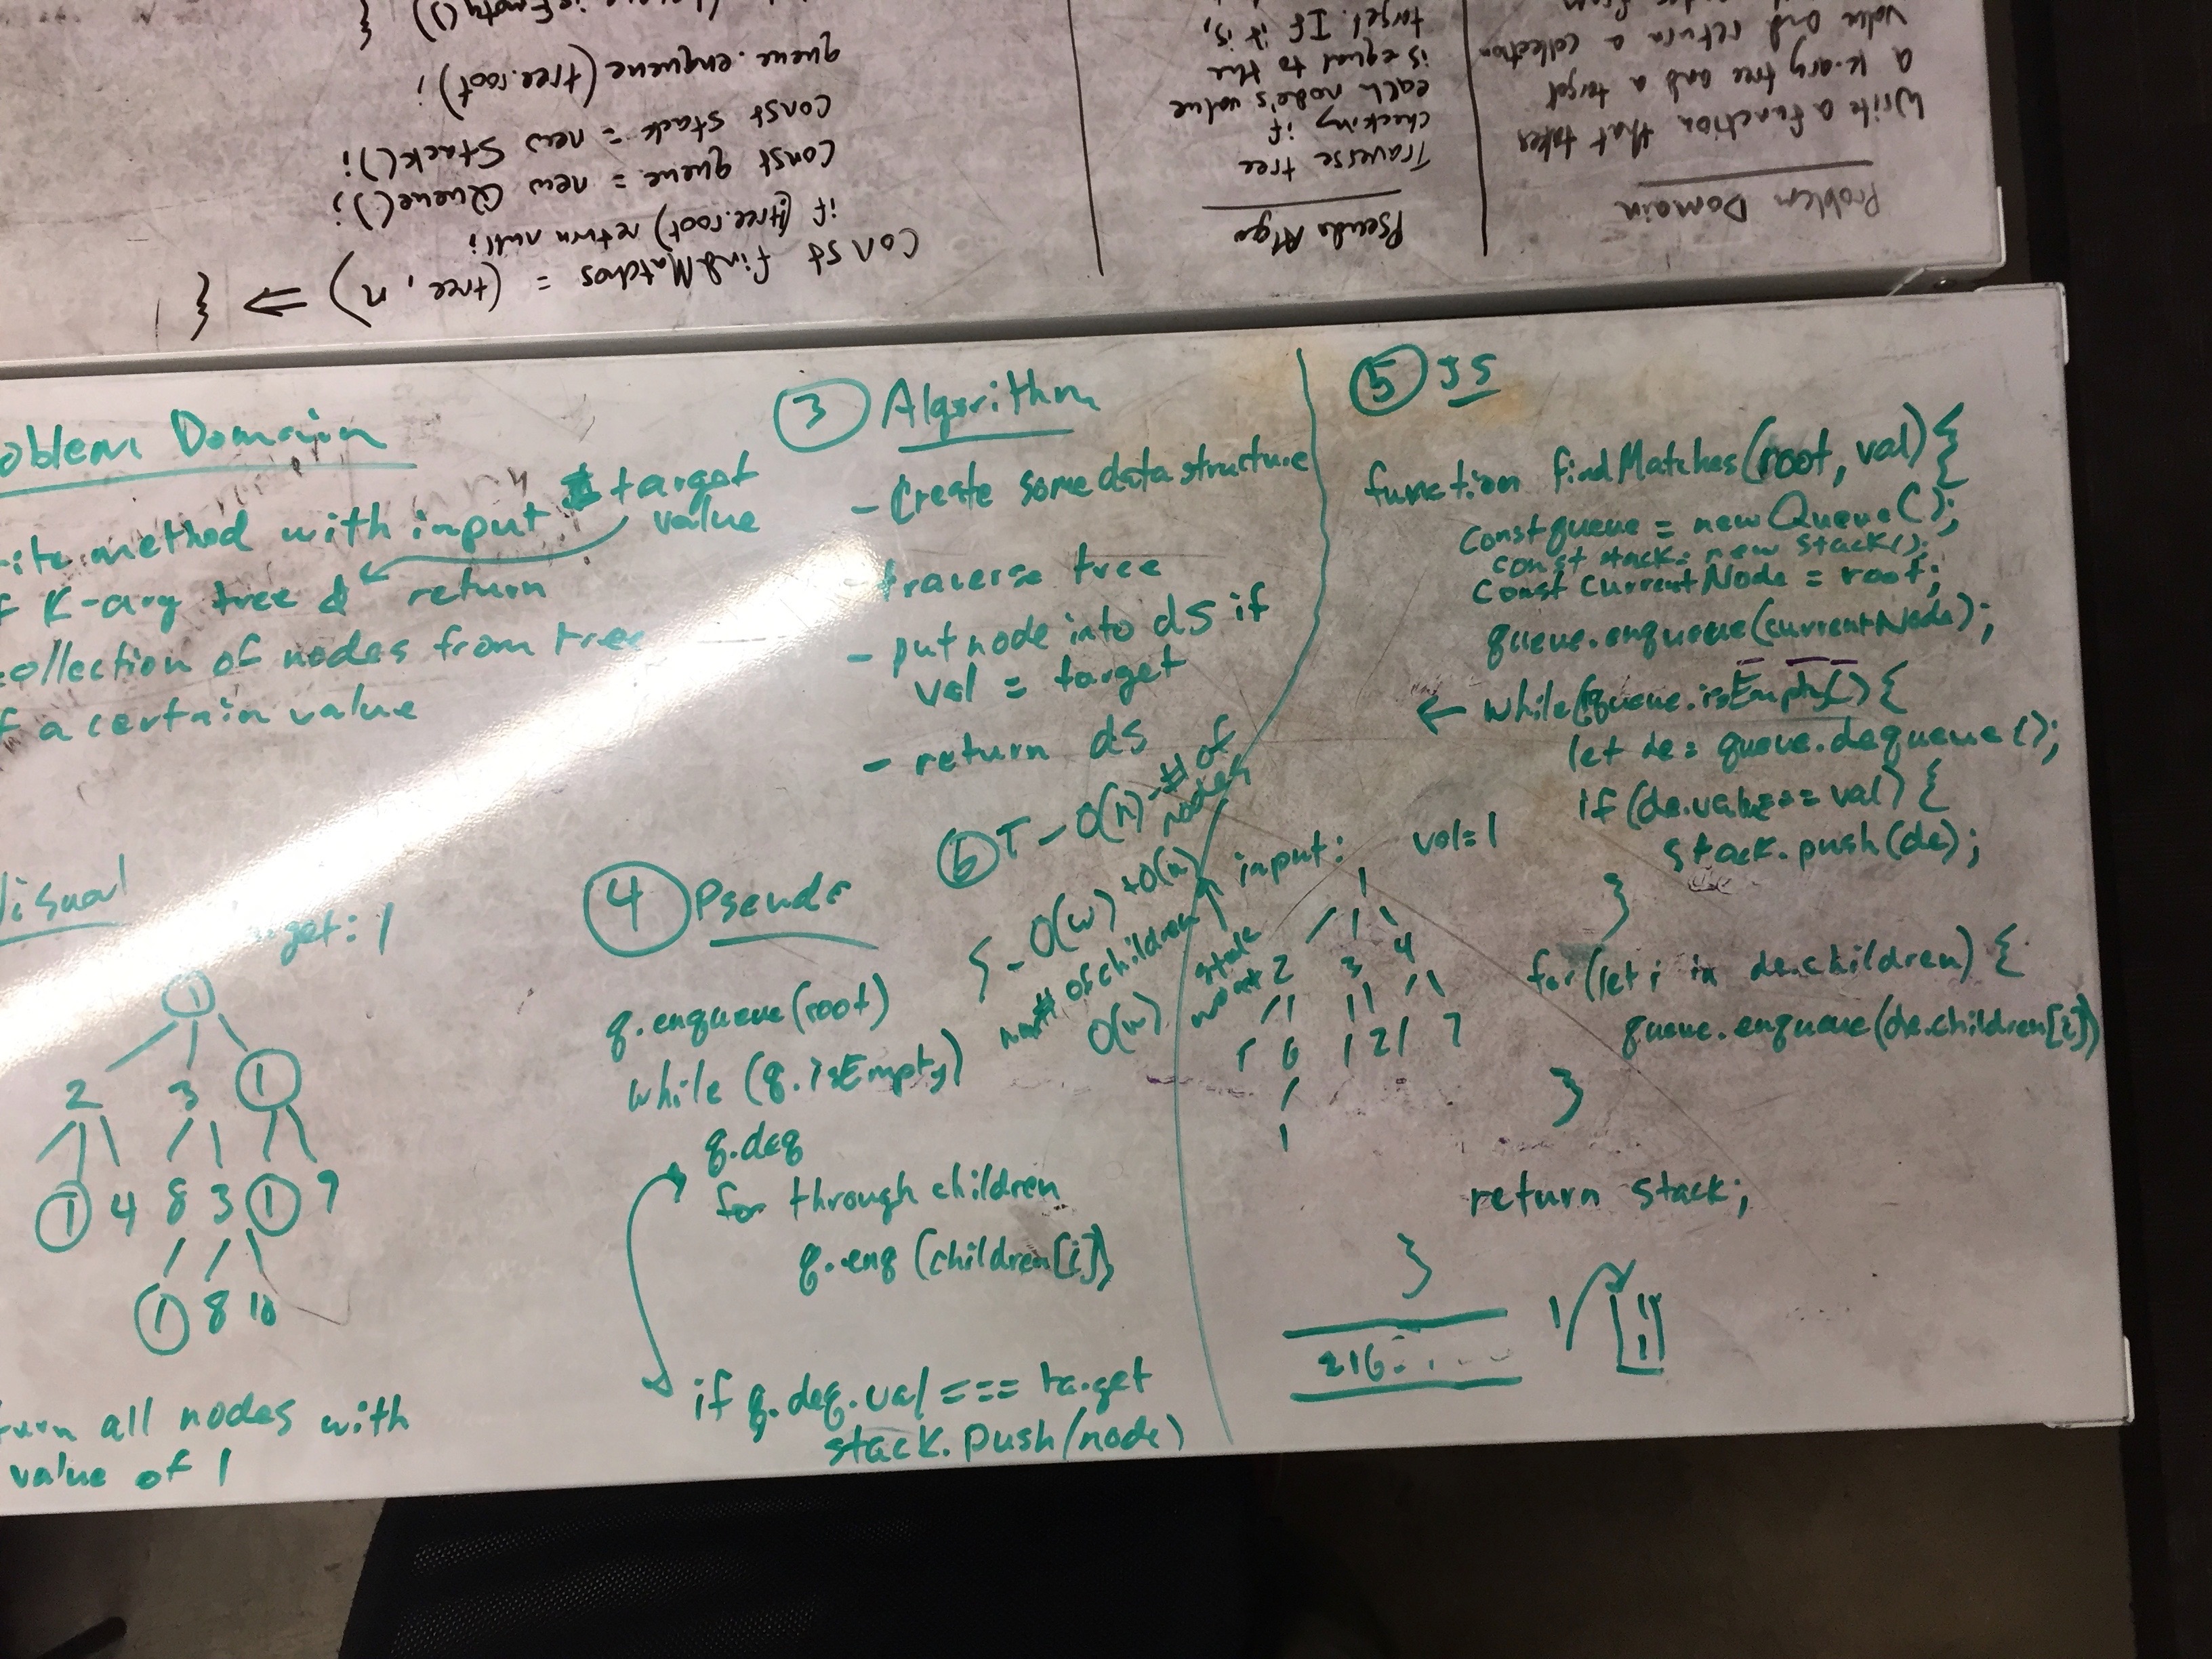 Problem Domain
Write a function that takes
a k-ary tree and a target
value and return a collection
Pseudo Algo
Traverse tree
checking if
each node's value
is equal to the
target. If it is,
const findMatches = (tree, n) => {
if (!tree.root) return null;
const queue = new Queue();
const stack = new Stack();
queue.enqueue(tree.root);
isEmpty()) {
oblem Domain
rite method with input target
value
f K-ary tree & return
collection of nodes from tree
f a certain value
isual
get: 1
1
2 3 1
1 4 8 3 1 9
1 8 10
turn all nodes with
value of 1
3 Algorithm
- Create some data structure
- traverse tree
- put node into ds if
val = target
- return ds
4 Pseudo
q.enqueue(root)
while (q.isEmpty)
q.deq
for through children
q.enq (children[i])
if q.deq.val === target
stack.push(node)
6 T - O(n) - # of
nodes
S - O(w) + O(n)
# of children
O(w)
stack
input: val=1
1
2 3 4
1 6 1 2 1 7
1
5 JS
function findMatches(root, val) {
const queue = new Queue();
const stack = new Stack();
const currentNode = root;
queue.enqueue(currentNode);
← while(!queue.isEmpty()) {
let de = queue.dequeue();
if (de.value === val) {
stack.push(de);
}
for(let i in de.children) {
queue.enqueue(de.children[i])
}
return stack;
}
216
1